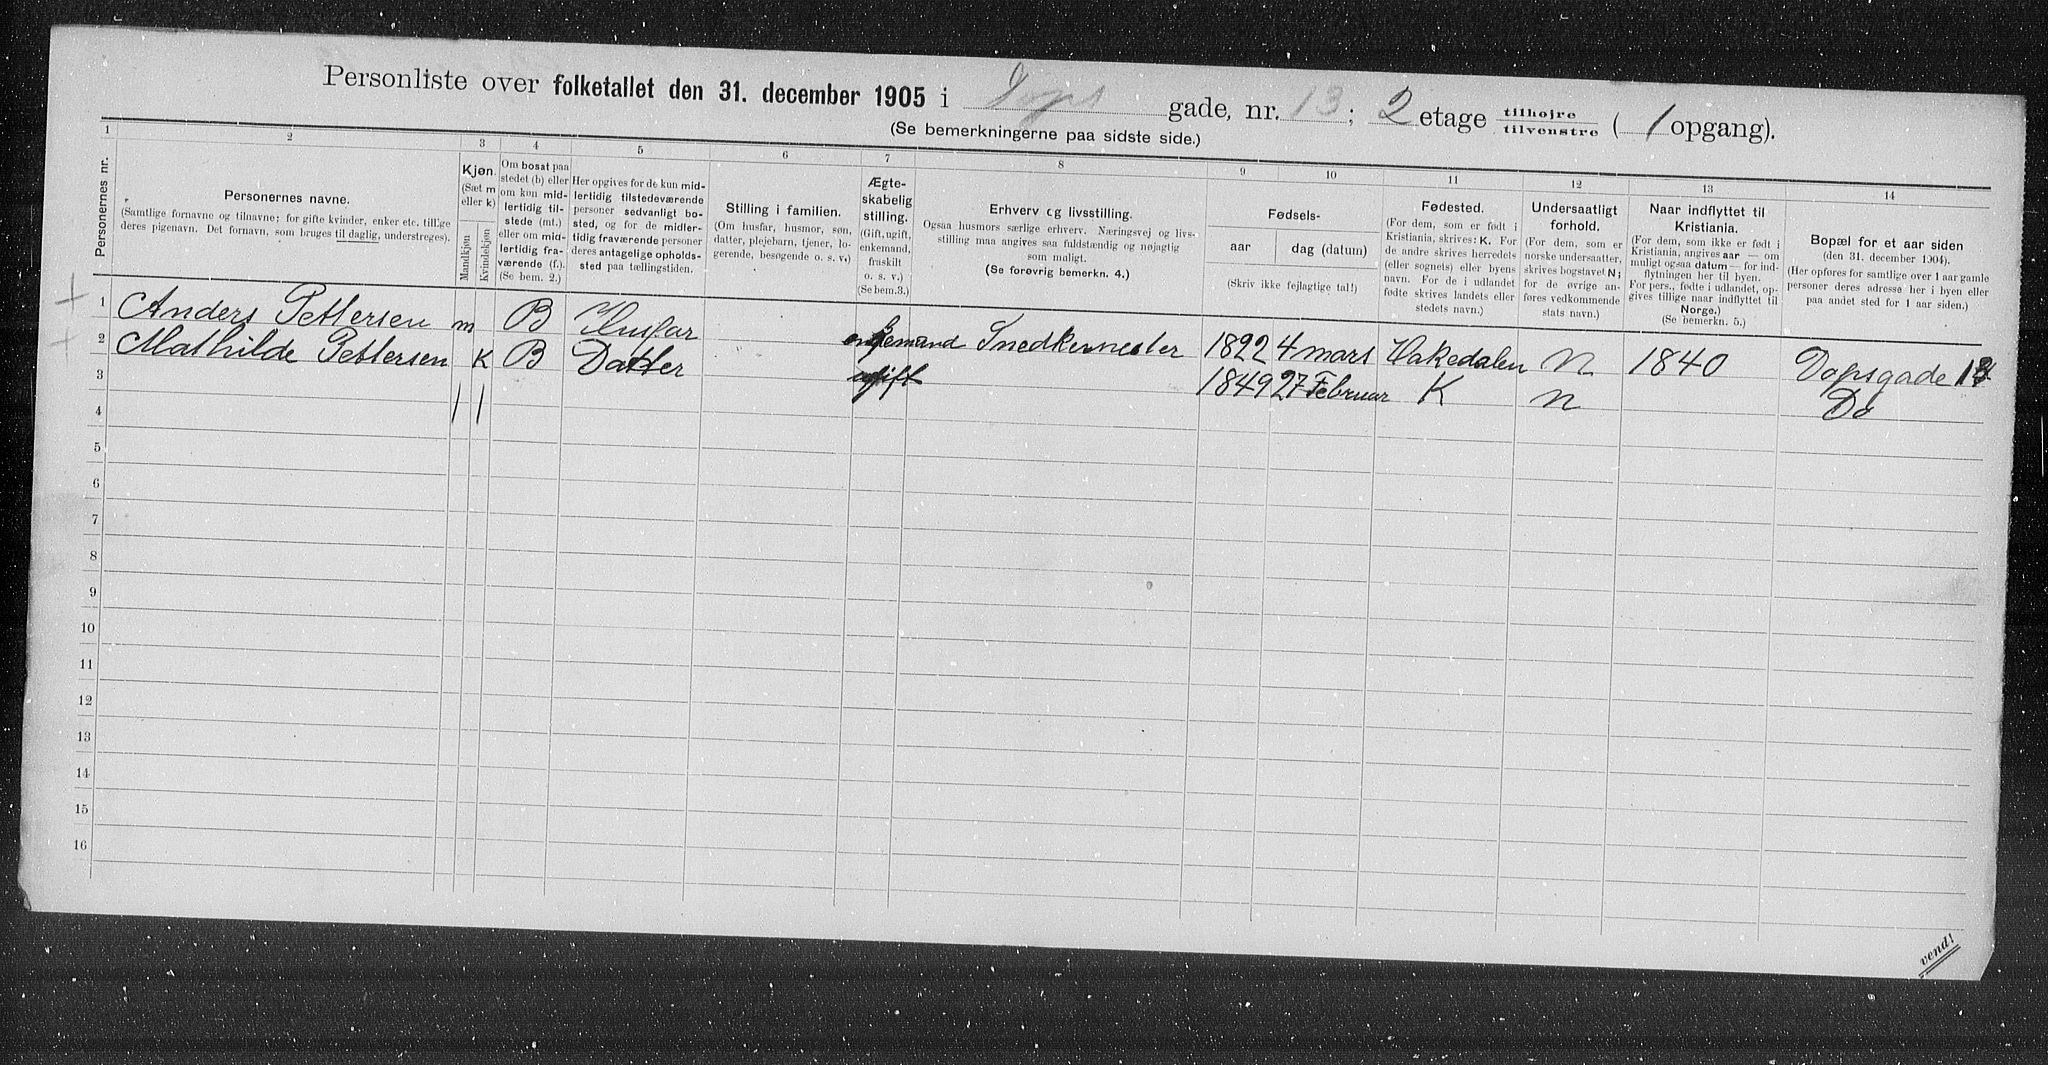 Personliste over folketallet den 31. december 1905 i Dops gade, nr. 13; 2 etage tilhøjre tilvenstre ( 1 opgang).
(Se bemerkningerne paa sidste side.)
1 2 3 4 5 6 7 8 9 10 11 12 13 14
Personernes nr.
Personernes navne.
(Samtlige fornavne og tilnavne; for gifte kvinder, enker etc. tillige
deres pigenavn. Det fornavn, som bruges til daglig, understreges).
Kjøn.
(Sæt m
eller k)
Mandkjøn
Kvindekjøn
Om bosat paa
stedet (b) eller
om kun mid-
lertidig til-
stede (mt.)
eller om mid-
lertidig fra-
værende (f.).
(Se bem. 2.)
Her opgives for de kun mid-
lertidig tilstedeværende
personer sedvanligt bo-
sted, og for de midler-
tidig fraværende personer
deres antagelige opholds-
sted paa tællingstiden.
Stilling i familien.
(Om husfar, husmor, søn,
datter, plejebarn, tjener, lo-
gerende, besøgende o. s. v.)
Ægte-
skabelig
stilling.
(Gift, ugift,
enkemand,
fraskilt
o. s. v.)
(Se bem.3.)
Erhverv og livsstilling.
Ogsaa husmors særlige erhverv. Næringsvej og livs-
stilling maa angives saa fuldstændig og nøjagtig
som muligt.
(Se forøvrig bemerkn. 4.)
Fødsels-
aar
dag (datum)
(Skriv ikke fejlagtige tal!)
Fødested.
(For dem, som er født i
Kristiania, skrives: K. For
de andre skrives herredets
(eller sognets) eller byens
navn. For de i udlandet
fødte skrives landets eller
stedets navn.)
Undersaatligt
forhold.
(For dem, som er
norske undersaatter,
skrives bogstavet N;
for de øvrige an-
føres vedkommende
stats navn.)
Naar indflyttet til
Kristiania.
(For dem, som ikke er født i
Kristiania, angives aar — om
muligt ogsaa datum — for ind-
flytningen her til byen.
For pers., fødte i udlandet, op-
gives tillige naar indflyttet til
Norge.)
(Se bemerkn. 5.)
Bopæl for et aar siden
(den 31. december 1904).
(Her opføres for samtlige over 1 aar gamle
personer deres adresse her i byen eller
paa andet sted for 1 aar siden.)
1 Anders Pettersen m B Husfar enkemand Snedkermester 1822 4 mars Hakedalen N 1840 Dopsgade 13
2 Mathilde Pettersen K B Datter ugift 1849 27 Februar K N Do
3
4 1 1
5
6
7
8
9
10
11
12
13
14
15
16
vend!